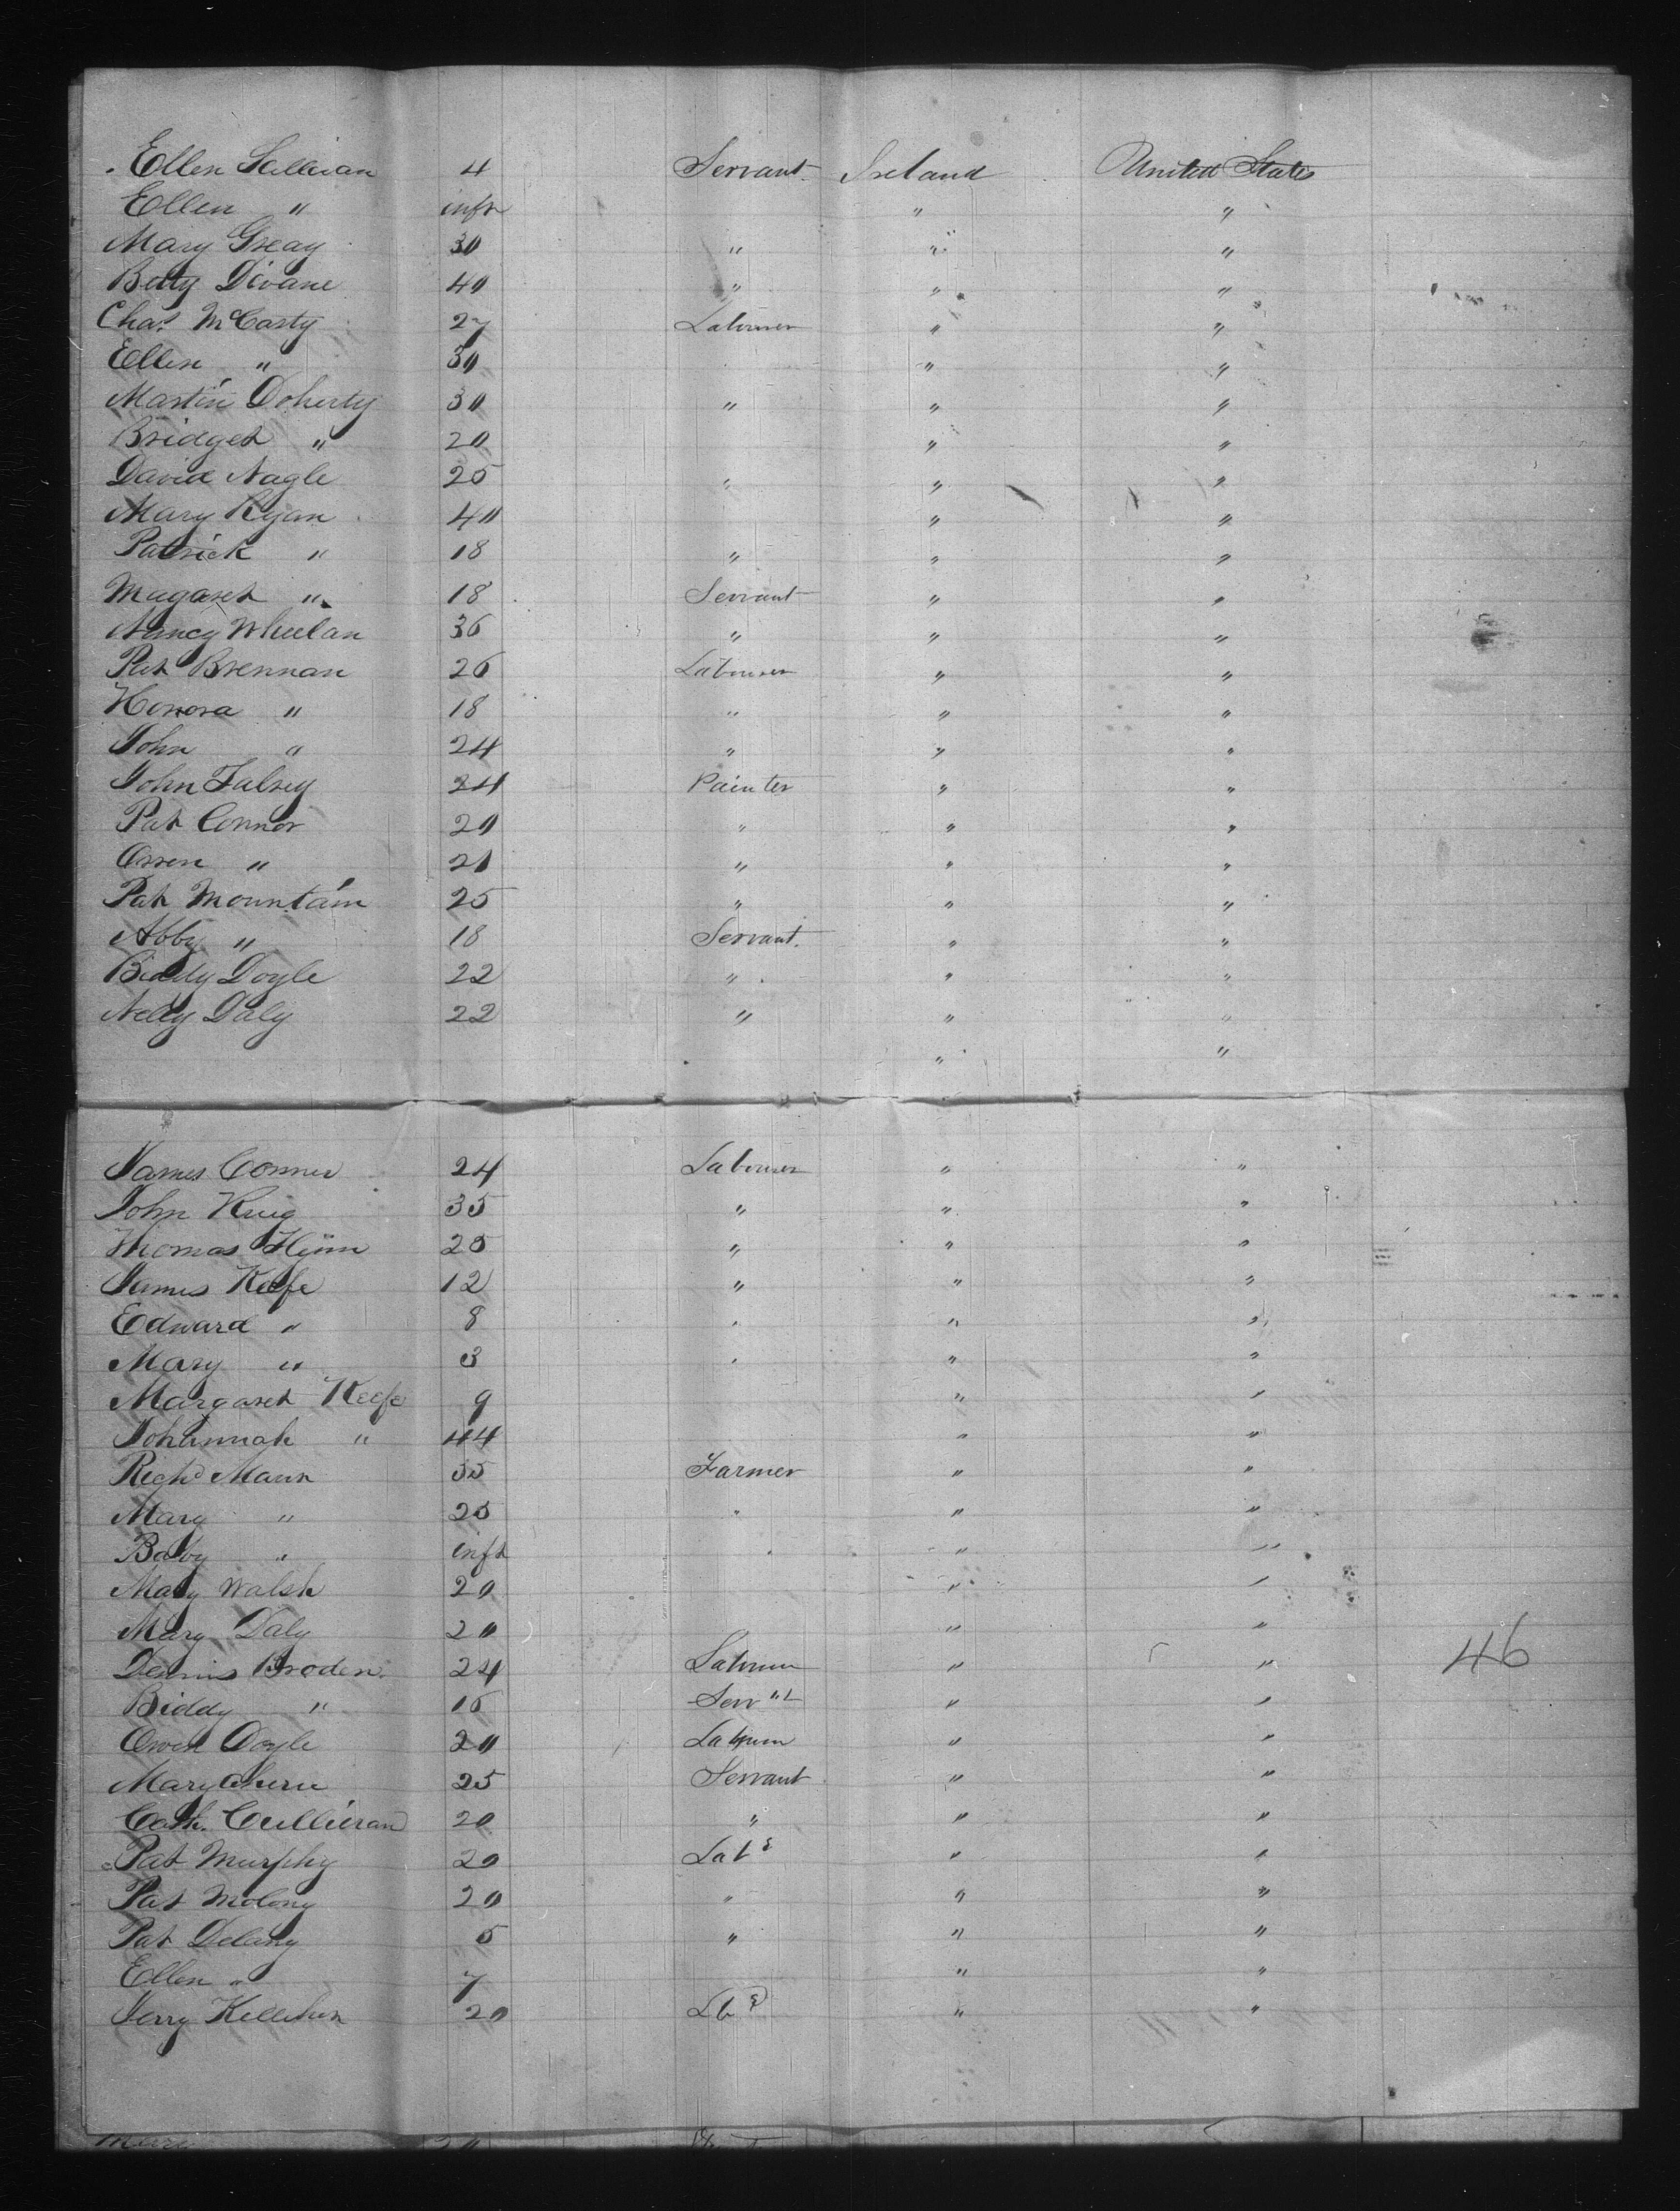 Ellen Sullivan 4 Servant Ireland United States
Ellen " infn " "
Mary Greay 30 " " "
Betty Divane 40 " " "
Chas McCarty 27 Labourer " "
Ellen " 30 " "
Martin Doherty 30 " " "
Bridget " 20 " "
David Nagle 25 " " "
Mary Ryan 40 " "
Patrick " 18 " " "
Magaret " 18 Servant " "
Nancy Wheelan 36 " " "
Pat Brennan 26 Labourer " "
Honora " 18 " " "
John " 24 " " "
John Falsey 24 Painter " "
Pat Connor 20 " " "
Owen " 21 " " "
Pat Mountain 25 " " "
Abby " 18 Servant " "
Biddy Doyle 22 " " "
Nelly Daly 22 " " "
" "
James Conner 24 Labourer " "
John 35 " " "
Thomas 25 " " "
James Keefe 12 " " "
Edward " 8 " " "
Mary " 3 " " "
Margaret Keefe 9 " "
Johannah " 44 " "
Richd Mann 35 Farmer " "
Mary " 25 " " "
Baby " inft " " "
Mary Walsh 20 " "
Mary Daly 20 " "
Dennis Broden 24 Labourer " " 46
Biddy " 16 Servnt " "
Owen Doyle 20 Labourer " "
Mary Aherne 25 Servant " "
Cath. 20 " " "
Pat Murphy 20 Labr " "
Pat Molony 20 " " "
Pat Delany 5 " " "
Ellen " 7 " "
Jerry Kellehen 20 Lbr " "
Mary